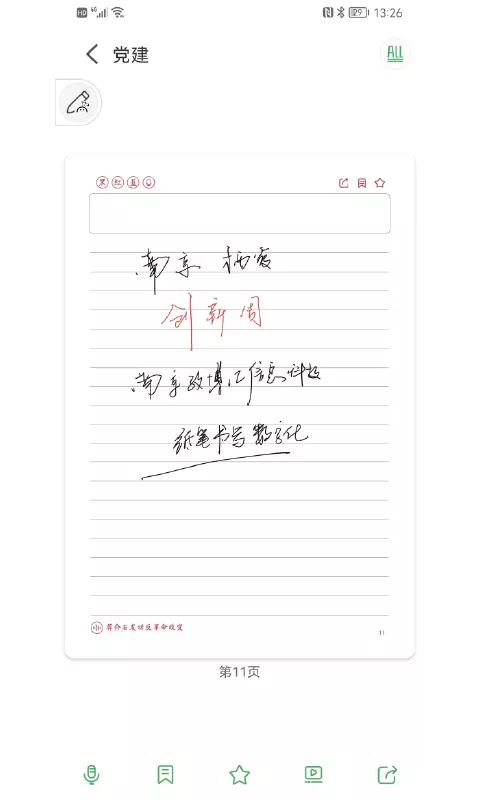 HD 4G 59 13:26
党建
ALL
黑 红 蓝
南京 栖霞
创新周
南京政博汇信息科技
纸笔书写数字化
蒋介石发动反革命政变
11
第11页